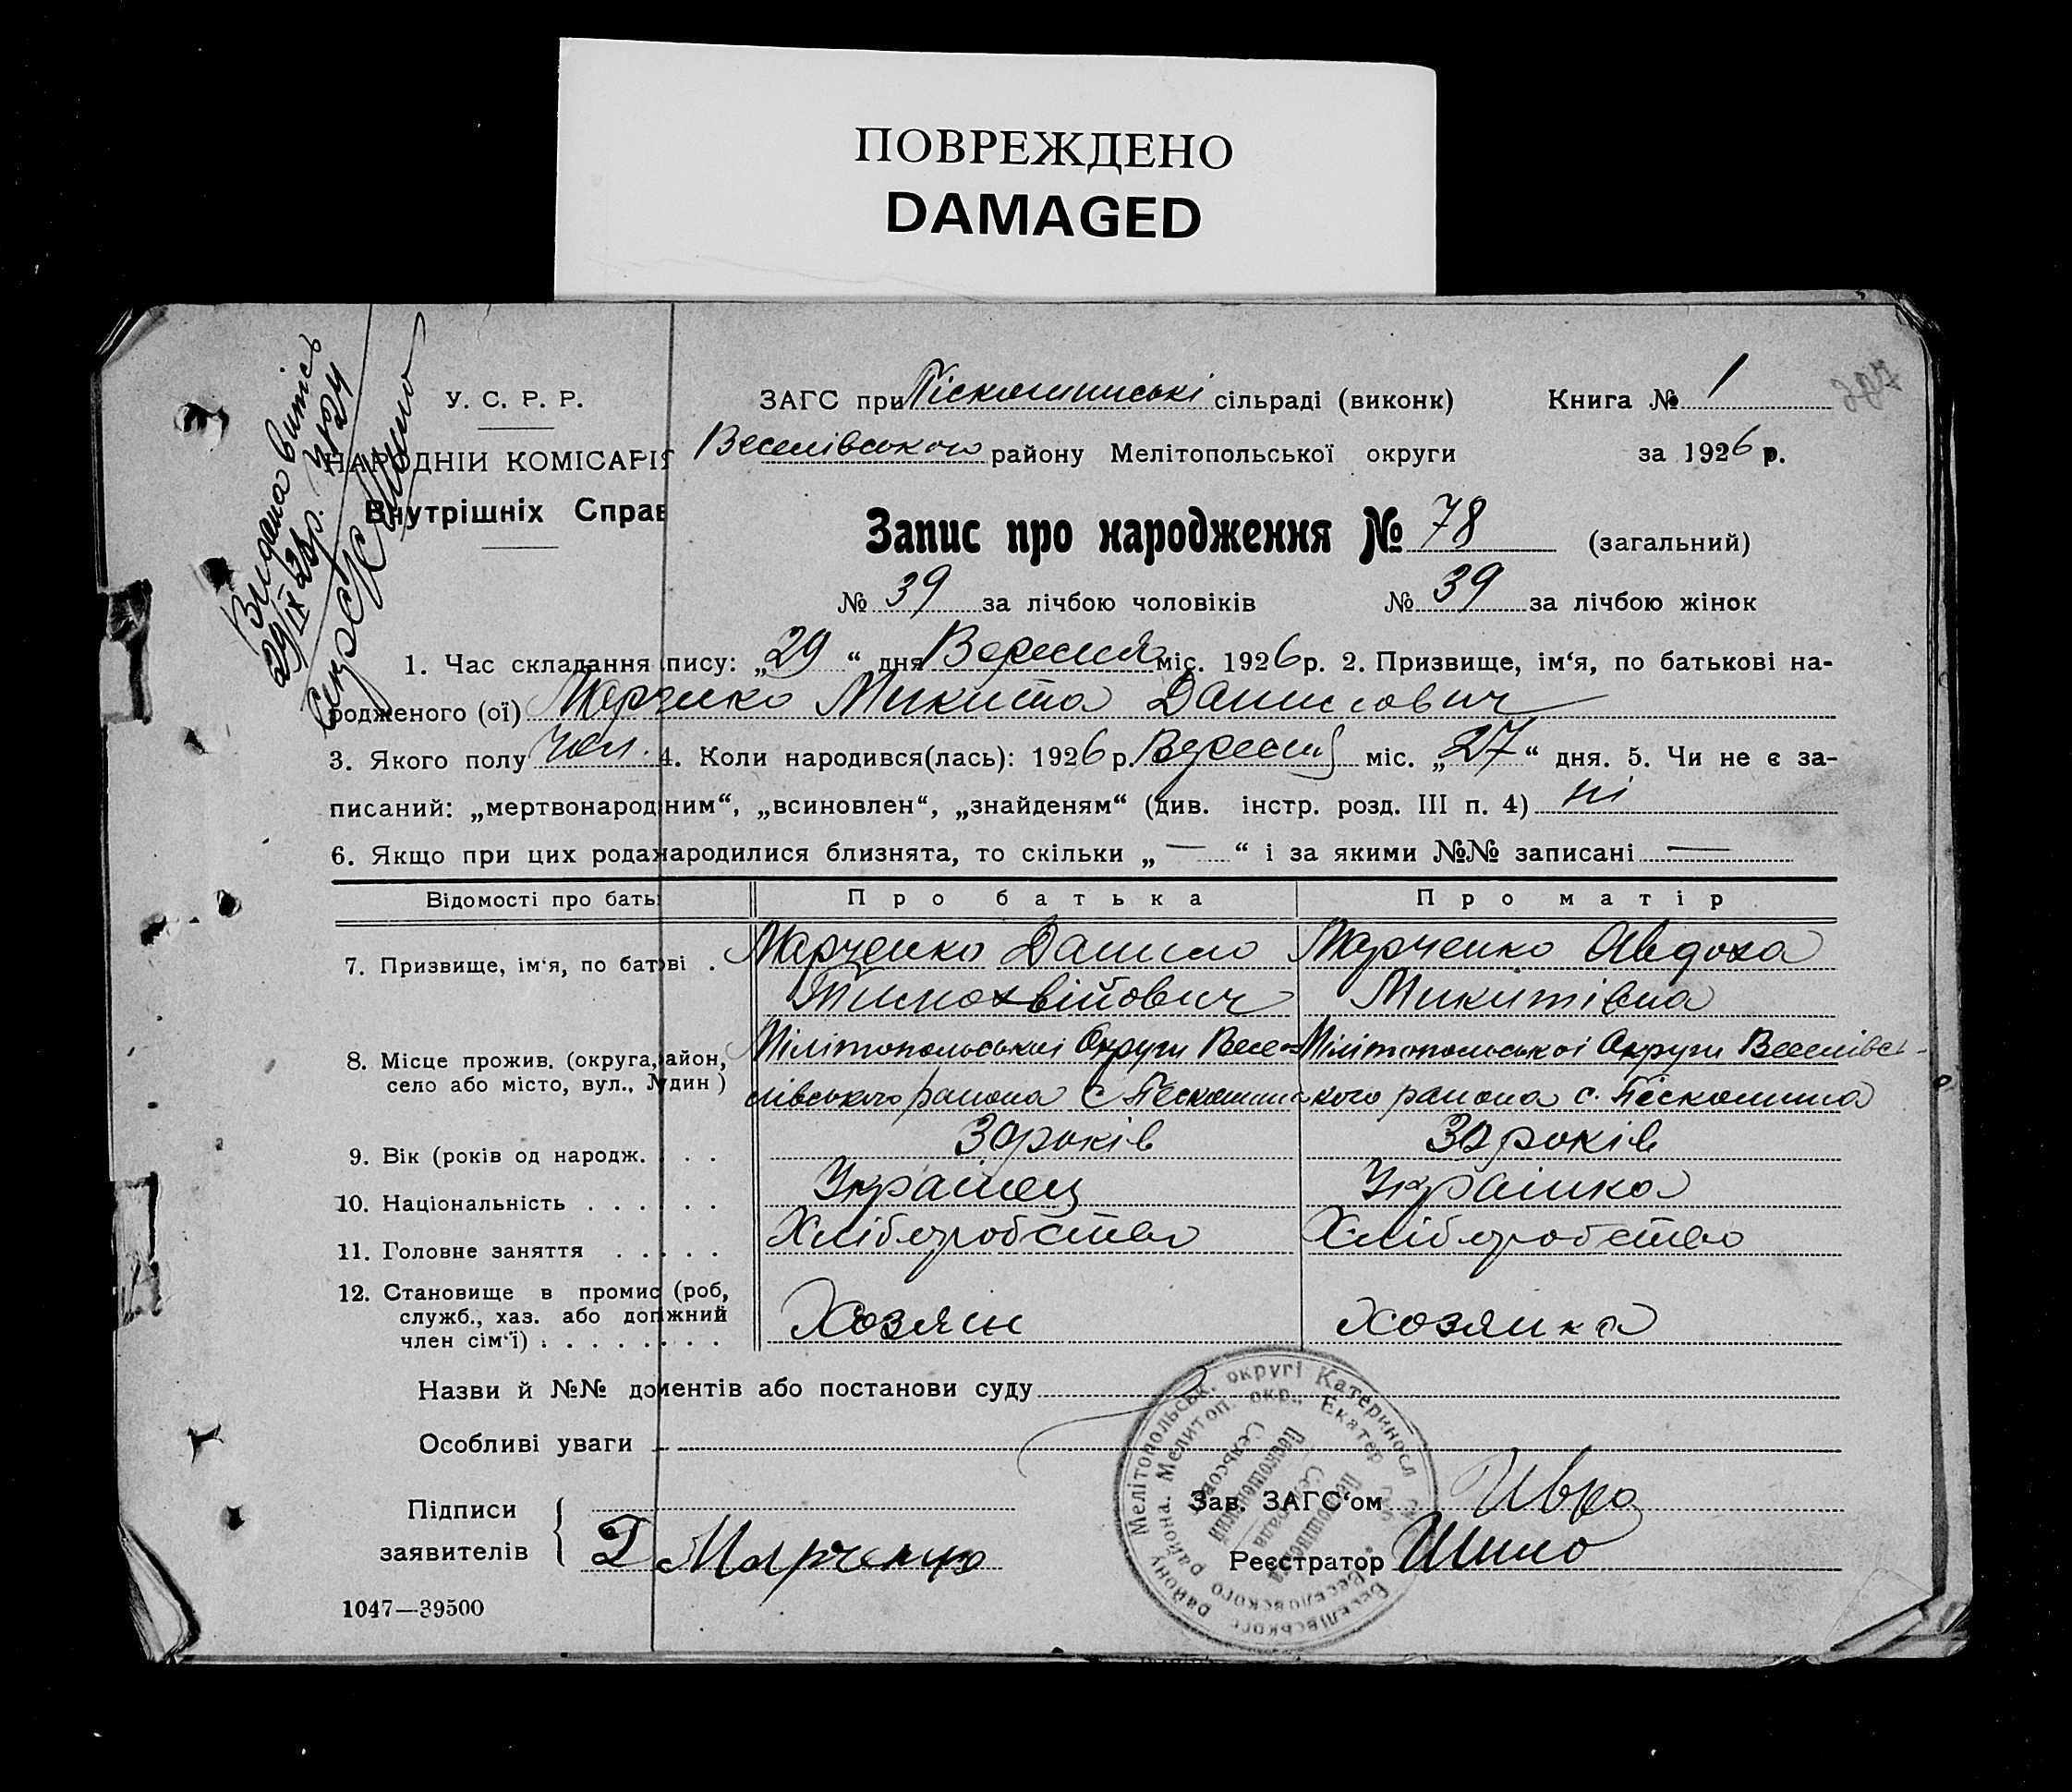 ПОВРЕЖДЕНО
DAMAGED
Видана витись
29/IX 26р. №24
Секр СРС Шило
У. С. Р. Р.
НАРОДНІЙ КОМІСАРІЯ
Внутрішніх Справ
ЗАГС при Піскошинські сільраді (виконк) Книга № 1
Веселівського району Мелітопольської округи за 1926 р.
Запис про народження № 78 (загальний)
№ 39 за лічбою чоловіків № 39 за лічбою жінок
1. Час складання пису: „29“ дня Вересня міс. 1926 р. 2. Призвище, ім‘я, по батькові на-
родженого (ої) Марченко Микита Данилович
3. Якого полу чол. 4. Коли народився(лась): 1926 р. Вересня міс. „27“ дня. 5. Чи не є за-
писаний: „мертвонародним“, „всиновлен“, „знайденям“ (див. інстр. розд. III п. 4) ні
6. Якщо при цих рода народилися близнята, то скільки „—“ і за якими №№ записані —
Відомості про бать Про батька Про матір
7. Призвище, ім‘я, по батові . Марченко Данило Марченко Явдоха
Тимофвійович Микитівна
8. Місце прожив. (округа, айон, Мілітопольської Округи Весе= Мілітопольської Округи Веселівсь-
село або місто, вул., № дин ) лівського району с Піскошина кого району с. Піскошина
9. Вік (років од народж. . . . 30 років 30 років
10. Національність . . . . . . Українец Українка
11. Головне заняття . . . . . Хліборобство Хліборобство
12. Становище в промис (роб,
служб., хаз. або допжний Хозяин хозяйка
член сім‘ї) . . . . . . . .
Назви й №№ доментів або постанови суду
Особливі уваги
Підписи
заявителів Д Марченко
Зав. ЗАГС‘ом
Реєстратор Шило
Веселівського району Мелітопольськ. округі Катериносл
Веселовского района. Мелитоп. окр., Екатер
Пескошинский
Сельсовет
Сельрада
1047—39500